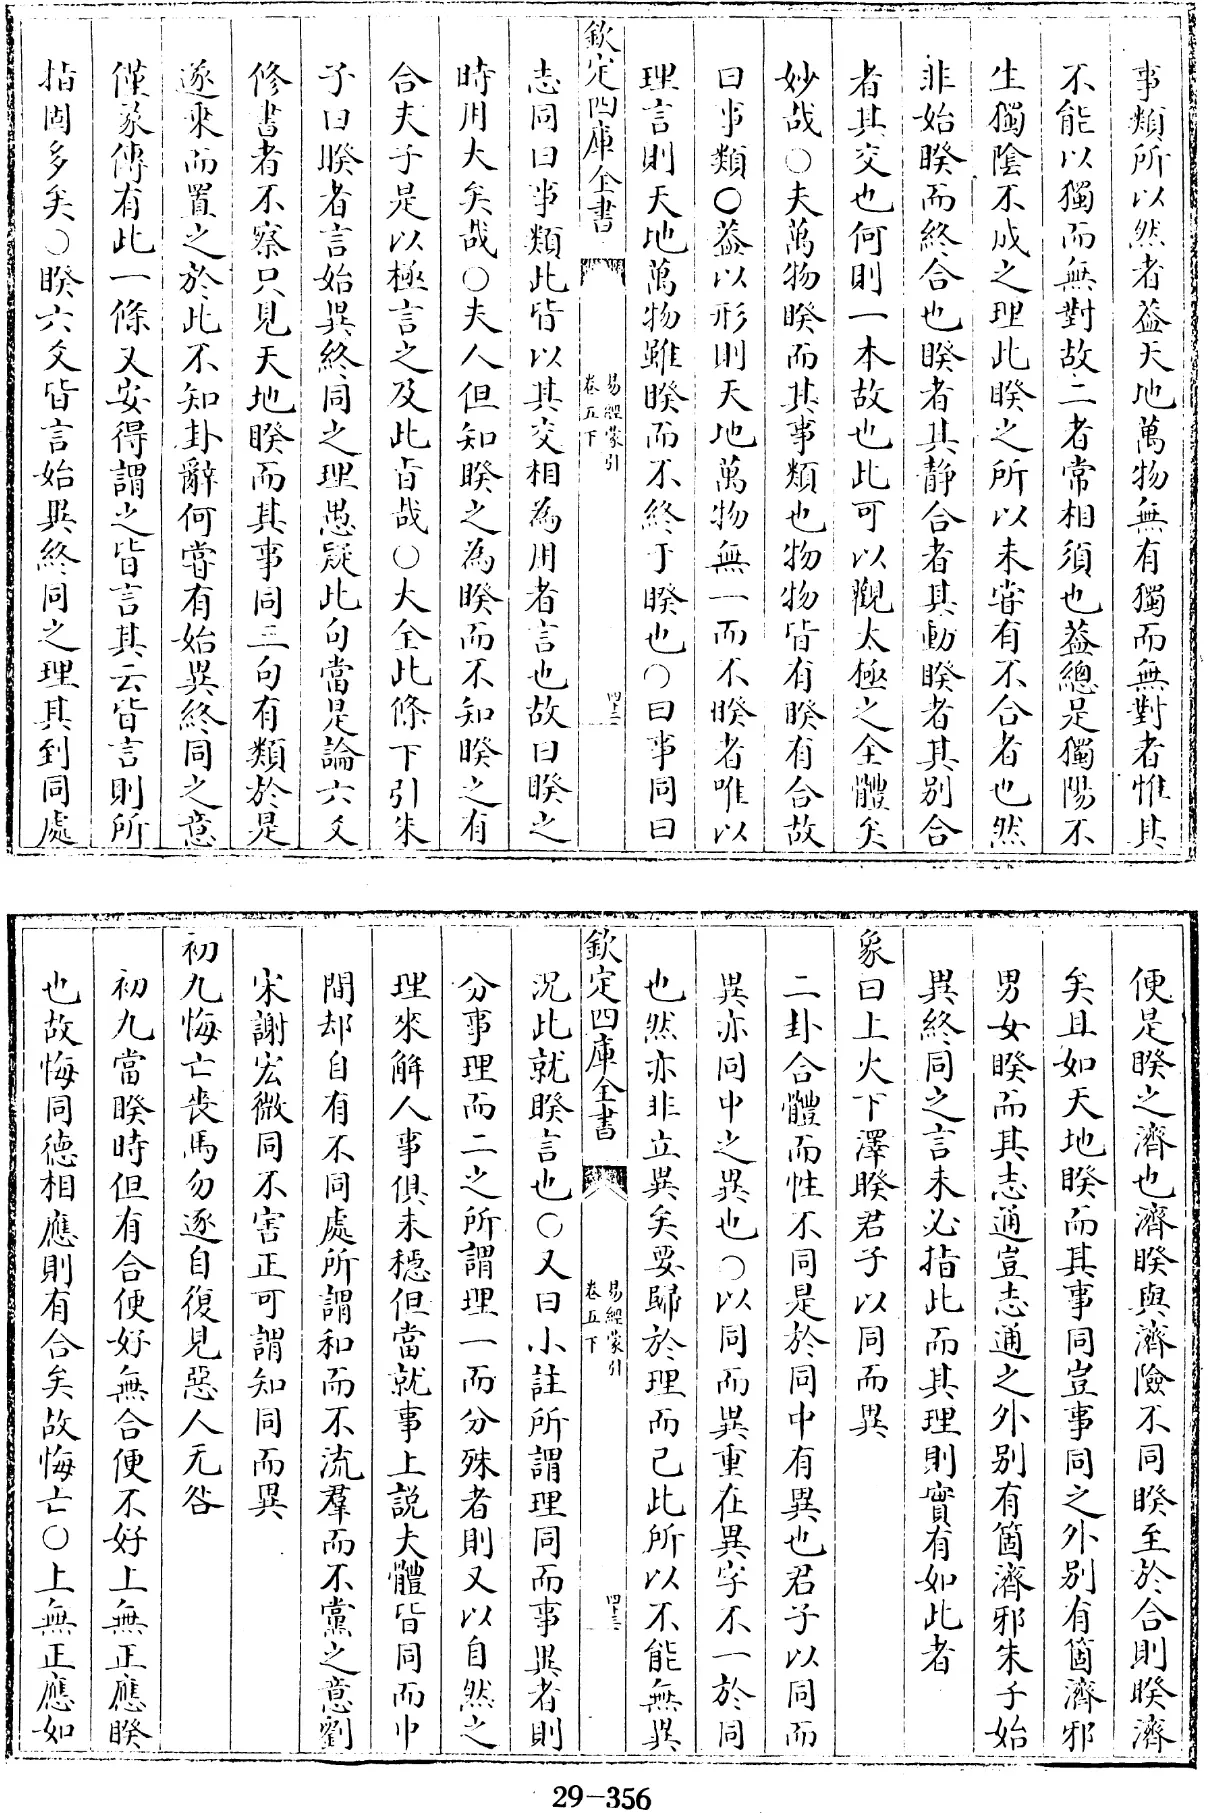 事類所以然者葢天地萬物無有獨而無對者惟其
不能以獨而無對故二者常相須也葢總是獨陽不
生獨陰不成之理此睽之所以未甞有不合者也然
非始睽而終合也睽者其静合者其動睽者其别合
者其交也何則一本故也此可以觀太極之全體矣
妙哉○夫萬物睽而其事類也物物皆有睽有合故
曰事類○葢以形則天地萬物無一而不睽者唯以
理言則天地萬物雖睽而不終于睽也○曰事同曰
欽定四庫全書
易經蒙引
卷五下
四十三
志同曰事類此皆以其交相為用者言也故曰睽之
時用大矣哉○夫人但知睽之為睽而不知睽之有
合夫子是以極言之及此旨哉○大全此條下引朱
子曰睽者言始異終同之理愚疑此句當是論六爻
修書者不察只見天地睽而其事同三句有類於是
遂来而置之於此不知卦辭何嘗有始異終同之意
僅彖傳有此一條又安得謂之皆言其云皆言則所
指固多矣○睽六爻皆言始異終同之理其到同處
便是睽之濟也濟睽與濟險不同睽至於合則睽濟
矣且如天地睽而其事同豈事同之外别有箇濟邪
男女睽而其志通豈志通之外别有箇濟邪朱子始
異終同之言未必指此而其理則實有如此者
象曰上火下澤睽君子以同而異
二卦合體而性不同是於同中有異也君子以同而
異亦同中之異也○以同而異重在異字不一於同
也然亦非立異矣要歸於理而已此所以不能無異
欽定四庫全書
易經蒙引
卷五下
四十三
況此就睽言也○又曰小註所謂理同而事異者則
分事理而二之所謂理一而分殊者則又以自然之
理來解人事俱未穩但當就事上説大體皆同而中
間却自有不同處所謂和而不流羣而不黨之意劉
宋謝宏微同不害正可謂知同而異
初九悔亡喪馬勿逐自復見惡人无咎
初九當睽時但有合便好無合便不好上無正應睽
也故悔同德相應則有合矣故悔亡○上無正應如
29-356